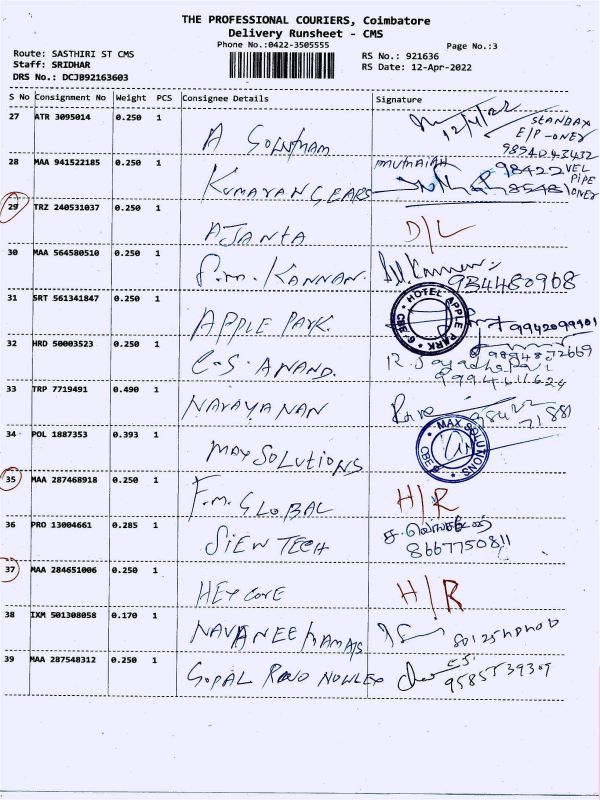 THE PROFESSIONAL COURIERS, Coimbatore
Delivery Runsheet - CMS
Phone No.:0422-3505555
Page No.:3
Route: SASTHIRI ST CMS
Staff: SRIDHAR
DRS No.: DCJB92163603
RS No.: 921636
RS Date: 12-Apr-2022
S No Consignment No Weight PCS Consignee Details Signature
27 ATR 3095014 0.250 1 A 12/4/22
STANDAX
E/P-ONEY
9894043432
28 MAA 941522185 0.250 1 KUMARAN GEARS MUTHAIAH 98422 VEL
PIPE
29 TRZ 240531037 0.250 1 AJANTA D/L
30 MAA 564580510 0.250 1 P.M. KANNAN. 934480908
31 SRT 561341847 0.250 1 APPLE PARK. HOTEL APPLE PARK CBE 9942099901
32 HRD 50003523 0.250 1 C.S. ANAND. 9894872669
R.
9994611624
33 TRP 7719491 0.490 1 NARAYANAN 98422
71881
34 POL 1887353 0.393 1 MAX SOLUTIONS MAX SOLUTIONS CBE
35 MAA 287468918 0.250 1 F.M. GLOBAL H/R
36 PRO 13004661 0.285 1 SIEW TECH
8667750811
37 MAA 284651006 0.250 1 HEY CORE H/R
38 IXM 501308058 0.170 1
39 MAA 287548312 0.250 1 GOPAL
9585539309